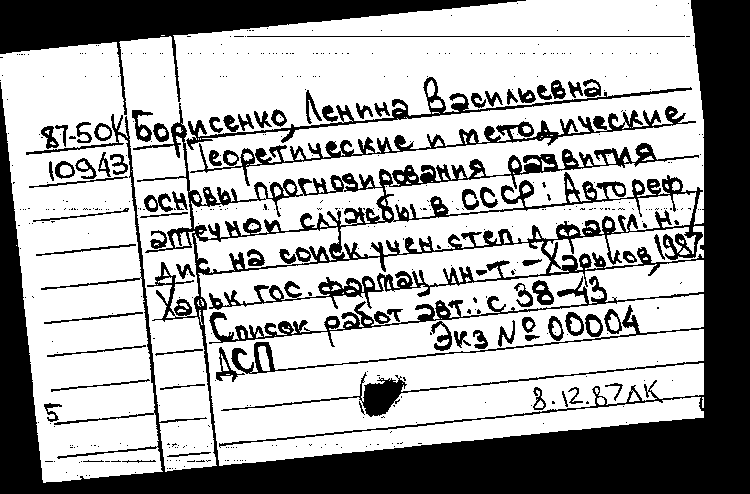 87-50К Борисенко, Ленина Васильевна.
10943 Теоретические и методические
основы прогнозирования развития
аптечной службы в СССР: Автореф.
дис. на соиск. учен. степ. д. фарм. н. /
Харьк. гос. фармац. ин-т. - Харьков, 1987.-
Список работ авт.: с. 38-43.
ДСП Экз № 00004
5 8.12.87 ЛК